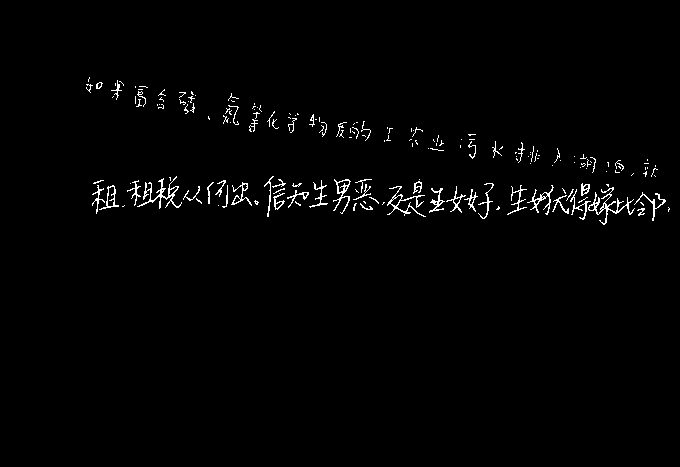 如果富含磷、氮等化学物质的工农业污水排入湖泊,就
租,租税从何出。信知生男恶,反是生女好,生女犹得嫁比邻,